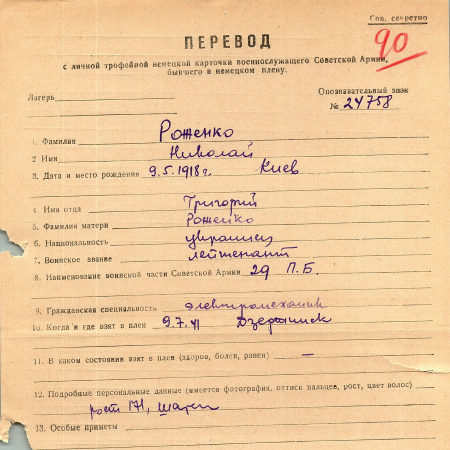 Сов. секретно
90
ПЕРЕВОД
с личной трофейной немецкой карточки военнослужащего Советской Армии,
бывшего в немецком плену.
Лагерь
Опознавательный знак
№ 24758
1. Фамилия Роженко
2 Имя Николай
3. Дата и место рождения 9.5.1918 г. Киев
4. Имя отца Григорий
5. Фамилия матери Роженко
6. Национальность украинец
7. Воинское звание лейтенант
8. Наименование воинской части Советской Армии 29 П.Б.
9. Гражданская специальность электромеханик
10. Когда и где взят в плен 9.7.41 Дзержинск
11. В каком состоянии взят в плен (здоров, болен, ранен) —
12. Подробные персональные данные (имеется фотография, оттиск пальцев, рост, цвет волос)
рост 171,
13. Особые приметы